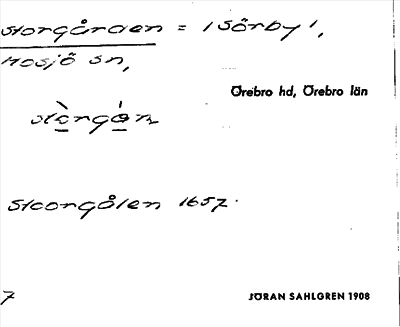 Storgården = 'Sörby',
Mosjö sn,
Örebro hd, Örebro län
stòrgán
Stoorgålen 1657.
7
JÖRAN SAHLGREN 1908